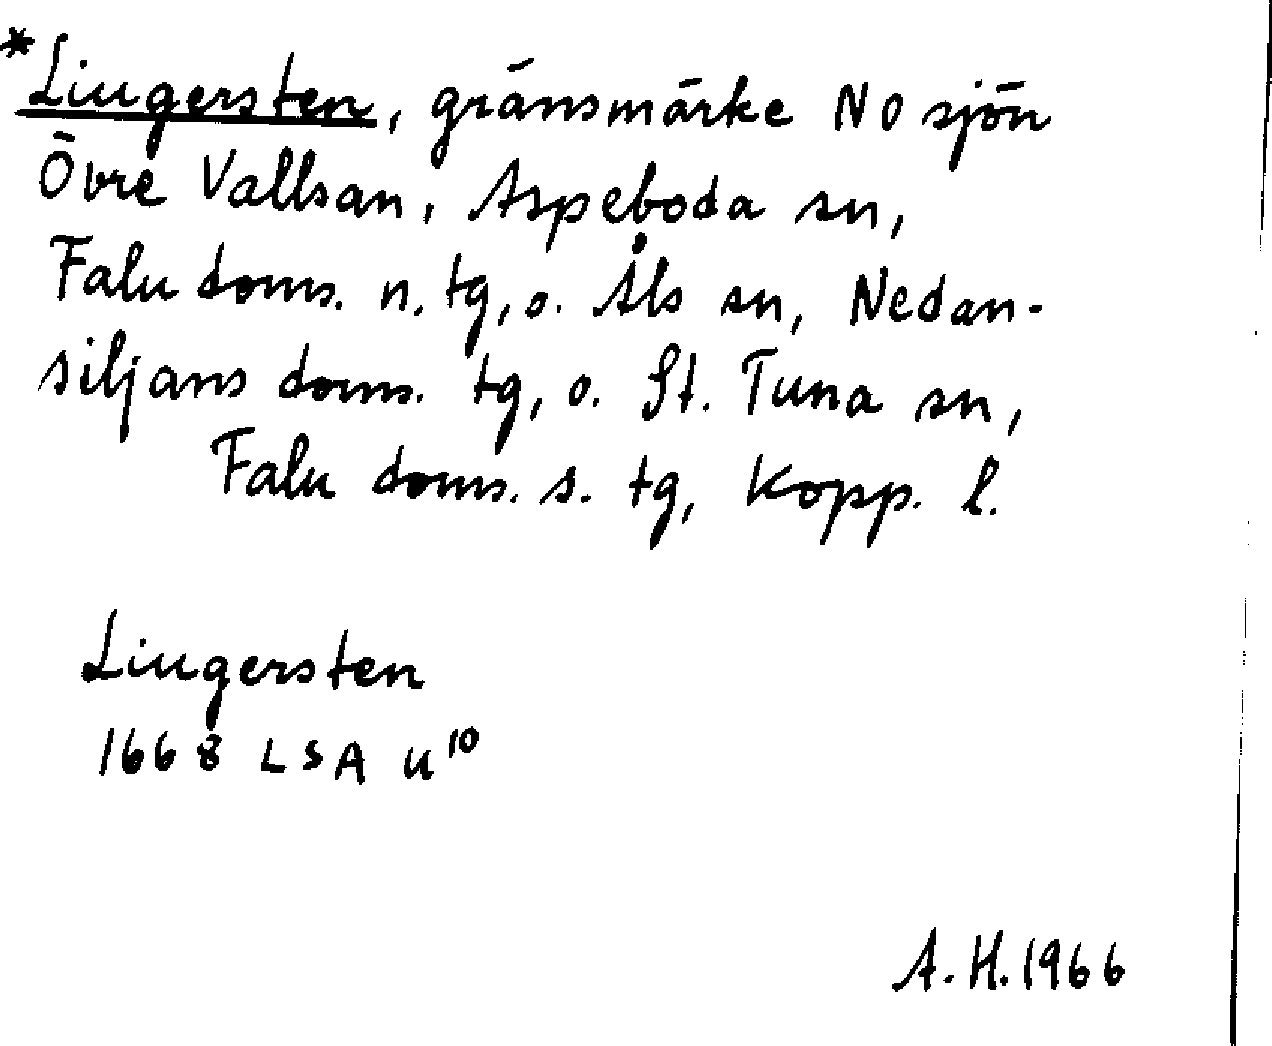 *Liugersten, gränsmärke NO sjön
Övre Vallsan, Aspeboda sn,
Falu doms. n. tg, o. Åls sn, Nedan-
siljans doms. tg, o. St. Tuna sn,
Falu doms. s. tg, Kopp. l.
Liugersten
1668 LSA U¹⁰
A.H. 1966